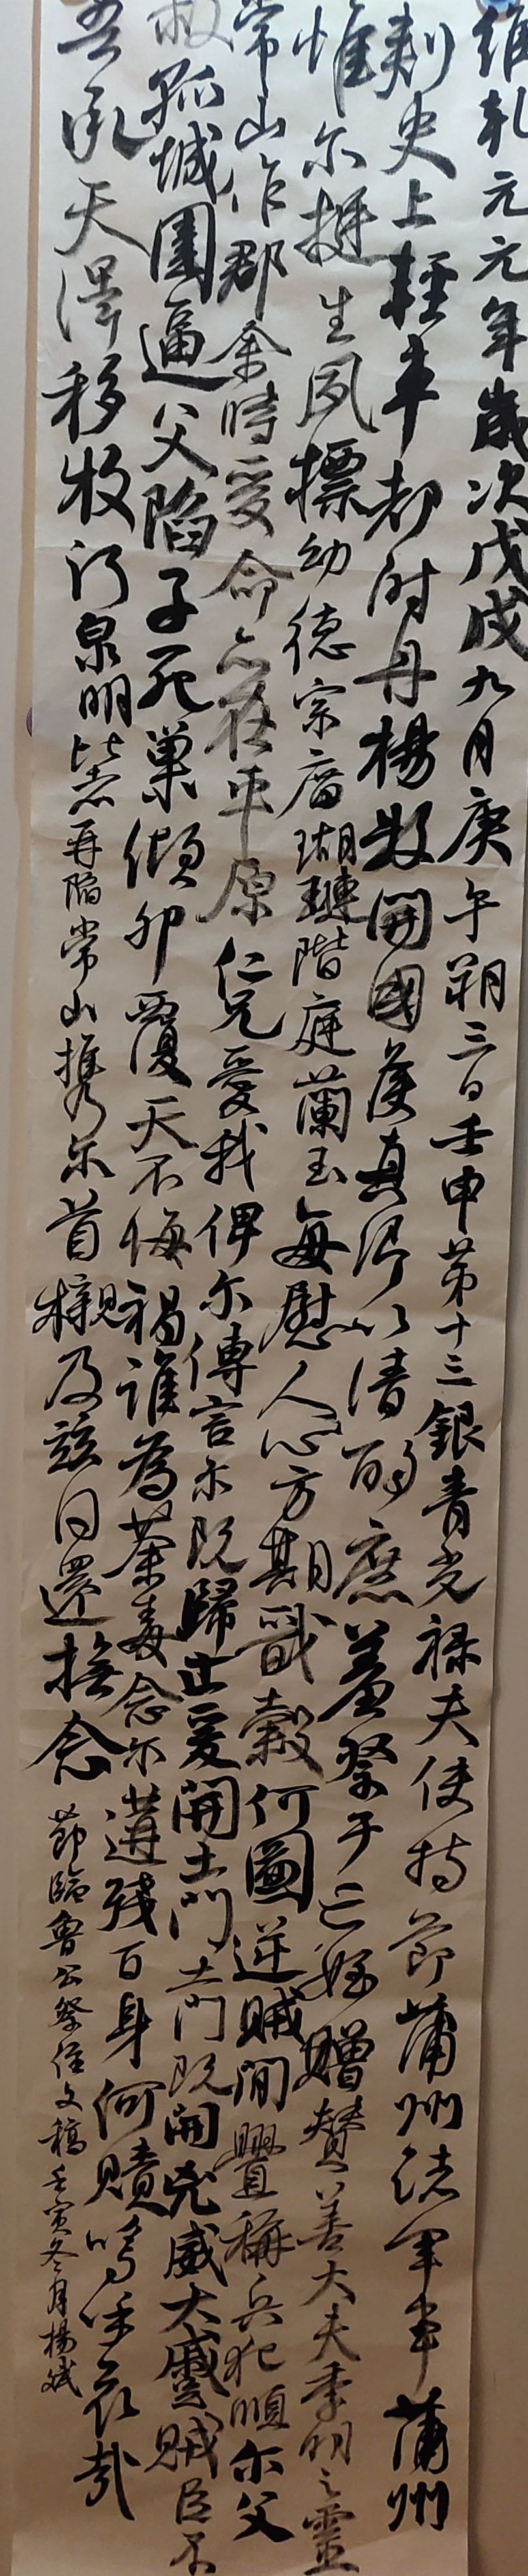 維乹元元年歲次戊戌九月庚午朔三日壬申第十三銀青光禄夫使持節蒲州諸軍事蒲州
刾史上輕車都尉丹楊縣開國侯真卿以清酌庶羞祭于亡姪贈赞善大夫季明之靈
惟尔挺生夙標幼德宗廟瑚璉階庭蘭玉每慰人心方期戩榖何圖逆賊間釁稱兵犯順尔父
常山作郡余時受命亦在平原仁兄愛我俾尔傳言尔既歸止爰開土門土門既開兇威大蹙賊臣不
救孤城圍逼父陷子死巢傾卵覆天不悔禍誰為荼毒念尔遘殘百身何贖嗚呼哀哉
吾承天澤移牧河泉明比者再陷常山携尔首櫬及兹同還撫念 節臨魯公祭侄文稿壬寅冬月楊斌